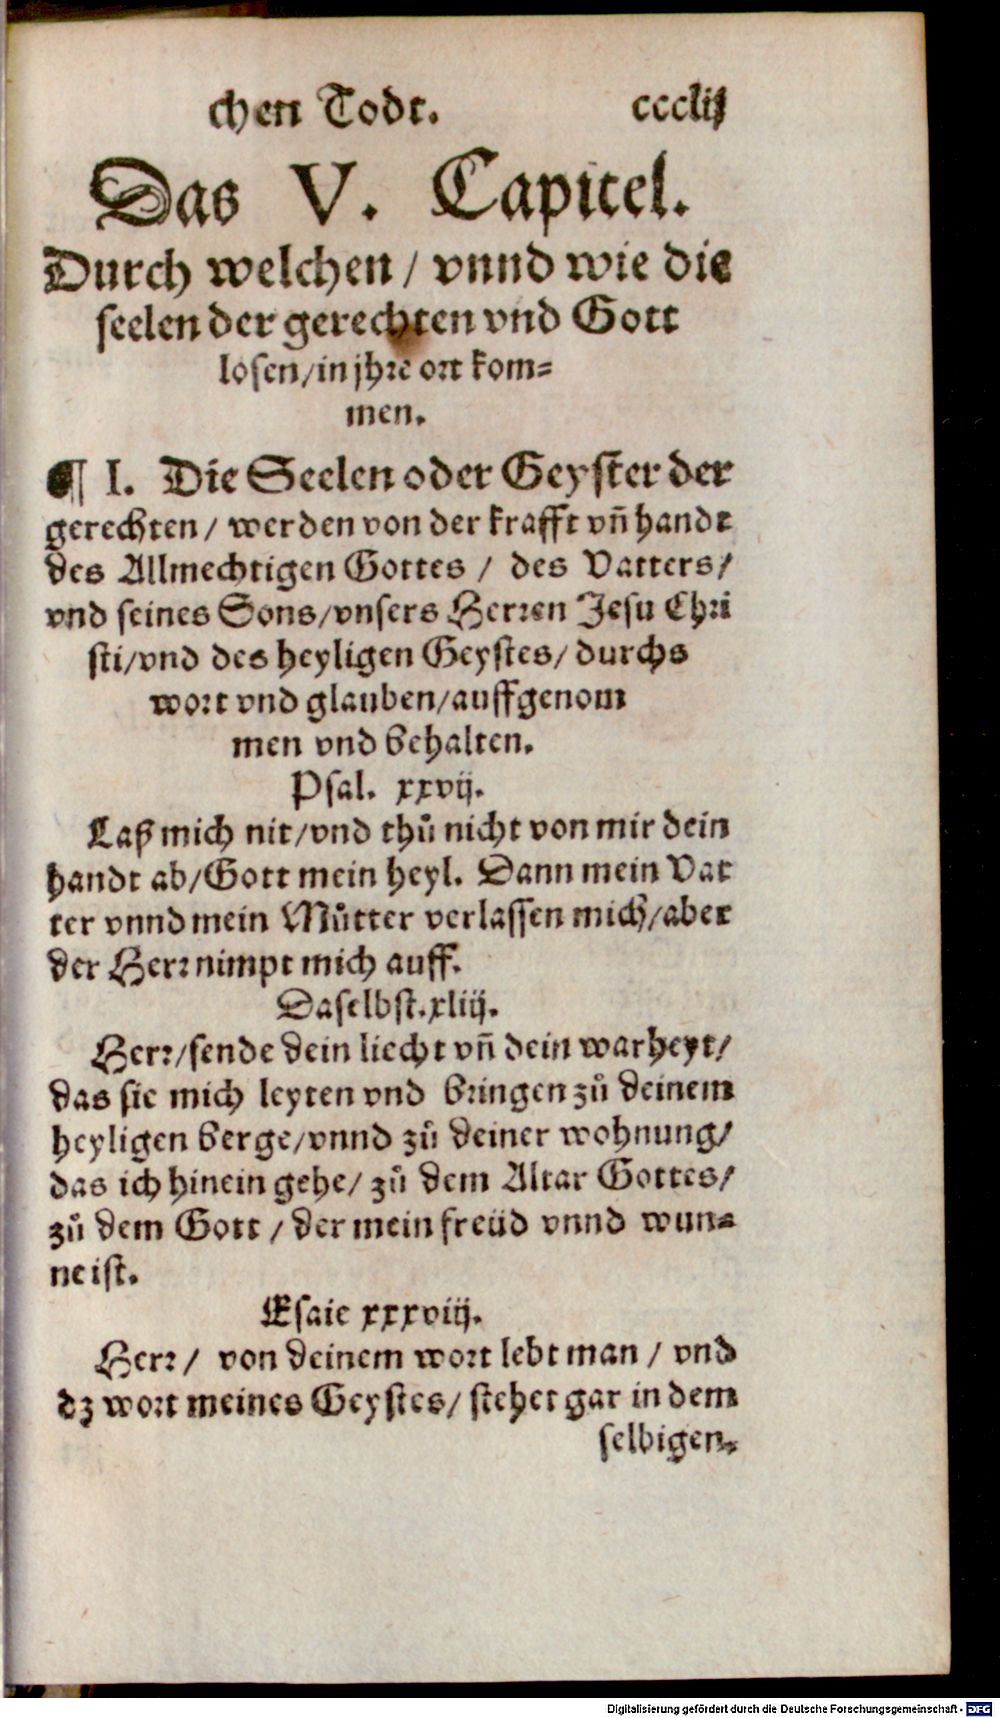 chen Todt. ccclij
Das V. Capitel.
Durch welchen / vnnd wie die
seelen der gerechten vnd Gott
losen/in jhre ort kom=
men.
¶ I. Die Seelen oder Geyster der
gerechten / werden von der krafft vñ handt
des Allmechtigen Gottes / des Vatters/
vnd seines Sons/vnsers Herren Jesu Chri
sti/vnd des heyligen Geystes/ durchs
wort vnd glauben/auffgenom
men vnd behalten.
Psal. xxvij.
Laß mich nit/vnd thů nicht von mir dein
handt ab/Gott mein heyl. Dann mein Vat
ter vnnd mein Můtter verlassen mich/aber
der Herr nimpt mich auff.
Daselbst.xliij.
Herr/sende dein liecht vñ dein warheyt/
das sie mich leyten vnd bringen zů deinem
heyligen berge/vnnd zů deiner wohnung/
das ich hinein gehe/ zů dem Altar Gottes/
zů dem Gott / der mein freüd vnnd wun=
ne ist.
Esaie xxxviij.
Herr / von deinem wort lebt man / vnd
dz wort meines Geystes/ stehet gar in dem
selbigen.
Digitalisierung gefördert durch die Deutsche Forschungsgemeinschaft - DFG